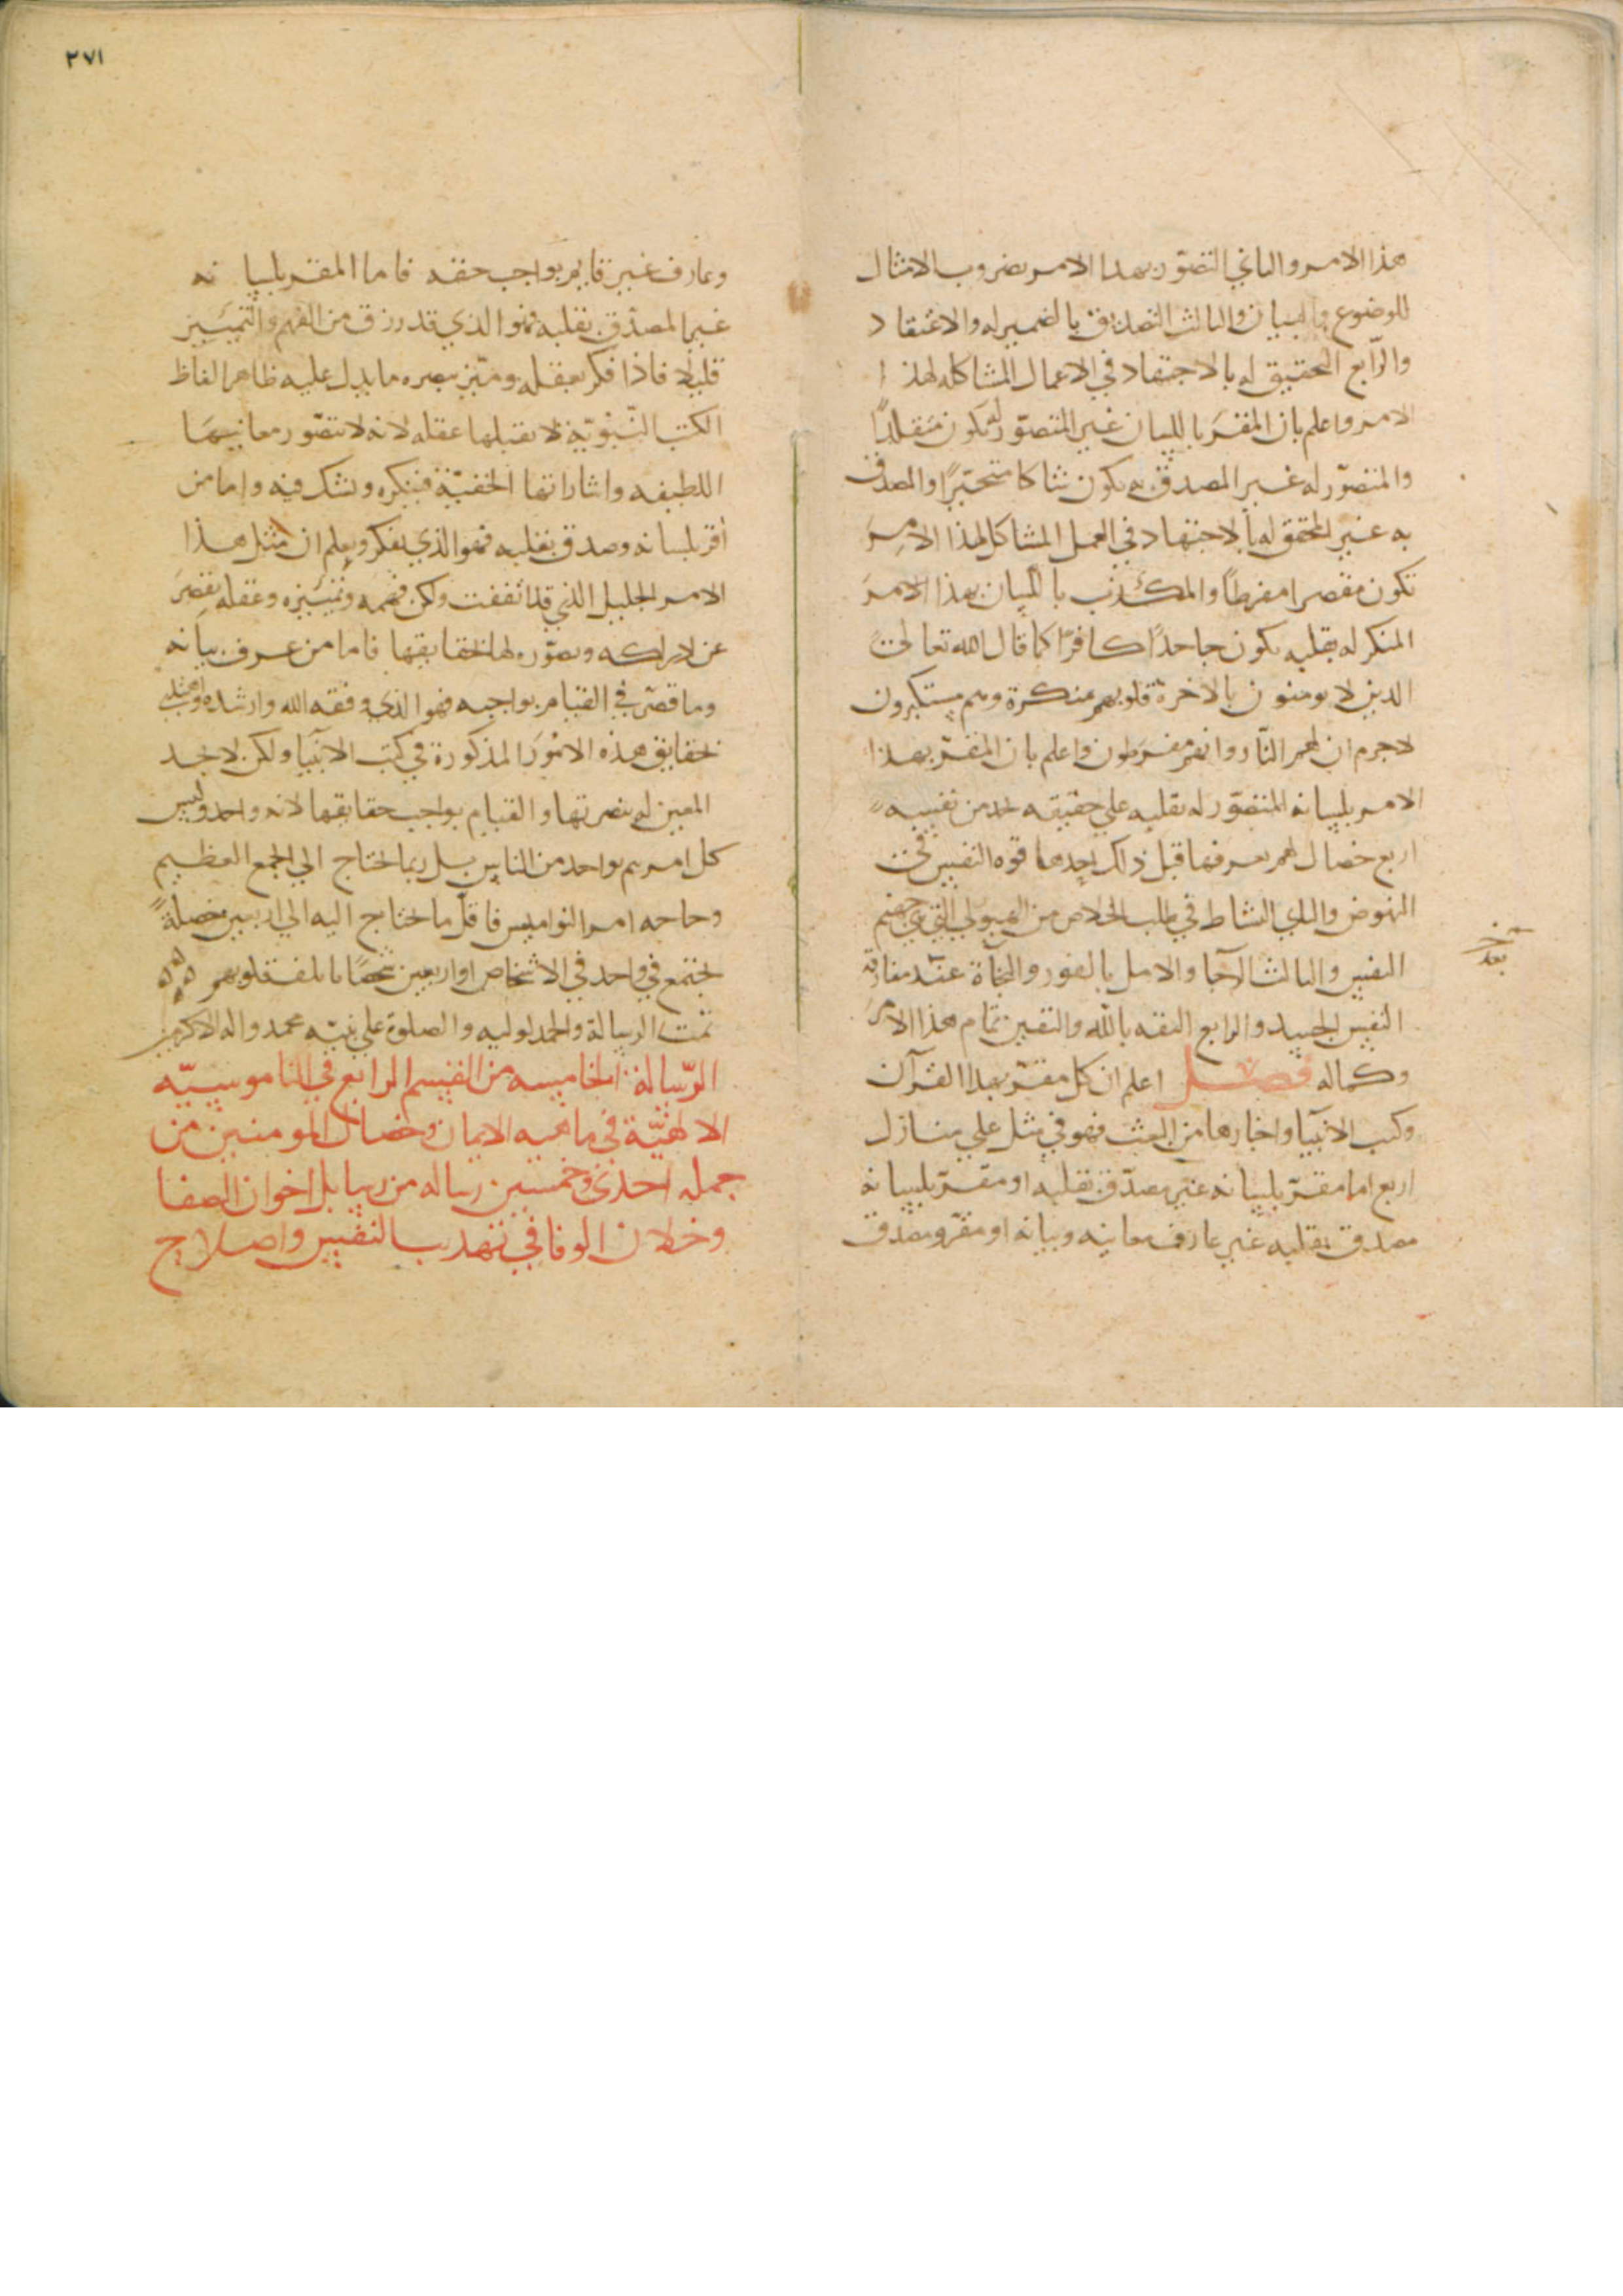 هذا الامر والثاني التصور بهذا الامر بضروب الامثال
للوضوح والبيان والثالث التصديق بالضمير له والاعتقاد
والرّابع التحقيق له بالاجتهاد في الاعمال المشاكله لهذا
الامر واعلم بان المقرّ باللسان غير المتصوّر له يكون مقلدًا
والمتصوّر له غير المصدق به يكون شاكا متحيّرًا والمصدق
به غير المحقق له بالاجتهاد في العمل المشاكل لهذا الامر
تكون مقصرا مفرطاً والمكذب باللسان بهذا الامر
المنكر له بقلبه يكون جاحدًا كافرًا كما قال الله تعالى
الذين لا يومنون بالاخرة قلوبهم منكرة وهم مستكبرون
لاجرم ان لهم النّار وانهم مفرطون واعلم بان المقرّ بهذا
الامر بلسانه المتصوّر له بقلبه علي حقيقته يجد من نفسه
اربع خصال لم يعرفها قبل ذالك احدها قوه النفس في
النهوض والثاني النشاط في طلب الخلاص من الهيولي التي هي جهنم
النفس والثالث الرجا والامل بالفوز والنجاة عند مفارقة
النفس الجسد والرابع الثقه بالله واليقين بتمام هذا الامر
وكماله فصل اعلم ان كل مقرّ بهذا القرآن
وكتب الانبيا واخبارها من البعث فهو في مثل علي منازل
اربع اما مقرّ بلسانه غير مصدّق بقلبه او مقرّ بلسانه
مصدق بقلبه غير عارف معانيه وبيانه او مقر ومصدق
بعد
٢٧١
وعارف غير قايم بواجب حقه فاما المقر بلسانه
غير المصدّق بقلبه فهو الذي قد رزق من الفهم والتمييز
قليلا فاذا فكر بعقله وميّز ببصره ما يدل عليه ظاهر الفاظ
الكتب النّبويّة لا يقبلها عقله لانه لا يتصوّر معانيها
اللطيفه واشاراتها الخفيّة فينكره ويشك فيه واما من
اقر بلسانه وصدق بقلبه فهو الذي يفكر ويعلم ان مثل هذا
الامر الجليل الذي قد اتفقت ولكن فهمه وتمييزه وعقله يقصر
عن ادراكه وتصوّره لها لحقايقها فاما من عرف بيانه
وما قصّر في القيام بواجبه فهو الذي وفقه الله وارشده
لحقايق هذه الامور المذكورة في كتب الانبيا ولكن لا يجد
المعين له بنصرتها والقيام بواجب حقايقها لانه واحد وليس
كل امر يتم بواحد من الناس بل ربما يحتاج الي الجمع العظيم
وحاجه امر النواميس فاقلّ ما يحتاج اليه الي اربعين خصلةً
تجتمع في واحد في الاشخاص او اربعين شخصًا بالمـ قلوبهم
تمت الرسالة والحمد لوليه والصلوة علي نبيّه محمد واله الاكرمين
الرّسالة الخامسه من القسم الرابع في الناموسيّه
الالهيّة في ماهيه الايمان وخصال المومنين من
جمله احدي وخمسين رساله من رسايل اخوان الصفا
وخلان الوفا في تهذيب النفس واصلاح